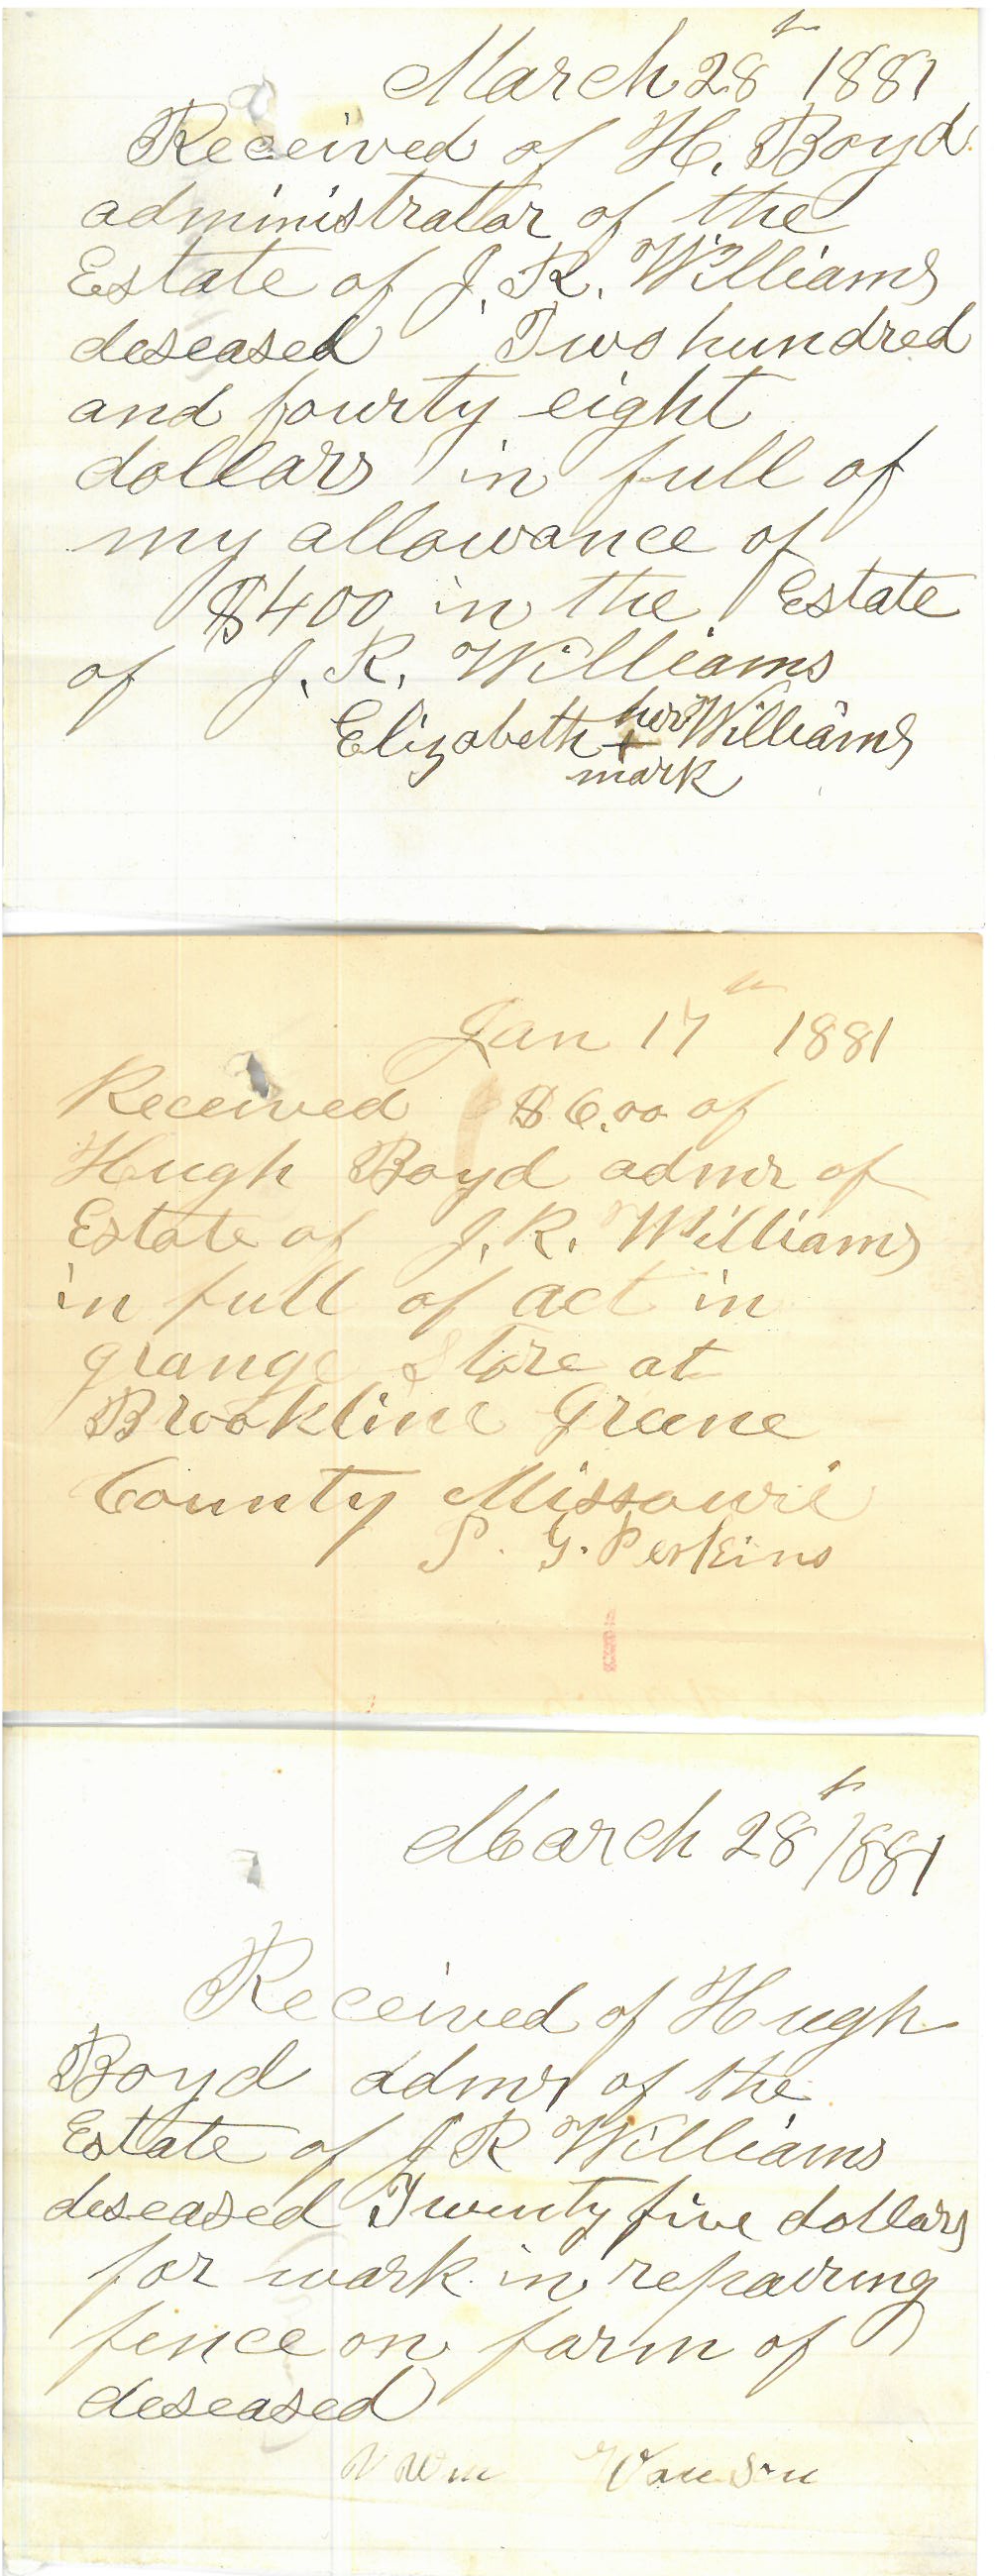 March 28th 1881
Received of H. Boyd
administrator of the
Estate of J. R. Williams
deseased Two hundred
and fourty eight
dollars in full of
my allowance of
$400 in the Estate
of J. R. Williams
her
Elizabeth + Williams
mark
Jan 17th 1881
Received $6.00 of
Hugh Boyd admr of
Estate of J. R. Williams
in full of act in
grange Store at
Brookline Greene
County Missouri
P. G. Perkins
March 28th 1881
Received of Hugh
Boyd admr of the
Estate of J R Williams
deseased Twenty five dollars
for work in repairing
fence on farm of
deseased
Wm